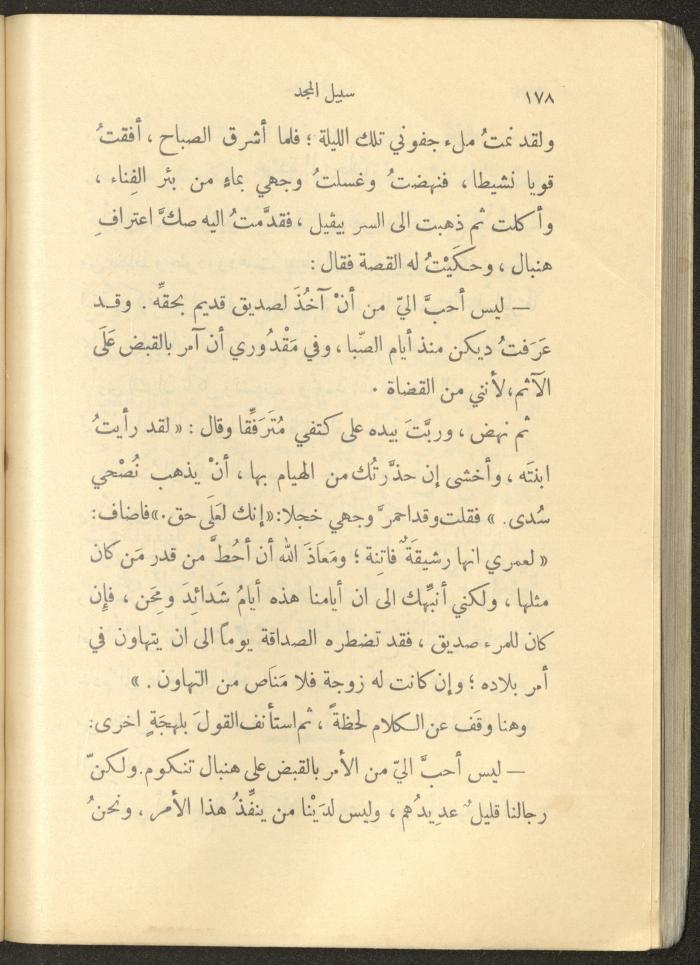 ١٧٨ سبيل المجد
ولقد نمتُ ملء جفوني تلك الليلة ؛ فلما أشرق الصباح ، أفقتُ
قويا نشيطا، فنهضتُ وغسلتُ وجهي بماءٍ من بئر الفِناء ،
وأكلت ثم ذهبت الى السر بيڤيل ، فقدَّمتُ اليه صكَّ اعترافِ
هنبال ، وحكَيْتُ له القصة فقال :
— ليس أحبَّ اليّ من أنْ آخُذَ لصديق قديم بحقّه . وقد
عَرَفتُ ديكن منذ أيام الصّبا ، وفي مَقْدُوري أن آمر بالقبض عَلَى
الآثم، لأنني من القضاة .
ثم نهض ، وربَّتَ بيده على كتفي مُتَرَفِّقا وقال : « لقد رأيتُ
ابنتَه ، وأخشى إن حذَّرتُك من الهيام بها ، أنْ يذهب نُصْحي
سُدى . » فقلت وقد احمرَّ وجهي خجلا: «إنك لعَلَى حق.» فاضاف:
« لعمري انها رشيقةٌ فاتِنة ؛ ومعَاذَ الله أن أحُطَّ من قدر مَن كان
مثلها ، ولكني أنبِّهك الى ان أيامنا هذه أيامُ شَدائِدَ ومِحَن ، فإِن
كان للمرء صديق ، فقد تضطره الصداقة يوماً الى ان يتهاون في
أمر بلاده ؛ وإن كانت له زوجة فلا مَنَاص من التهاون . »
وهنا وقَف عن الكلام لحظةً ، ثم استأنف القولَ بلهجَةٍ اخرى:
— ليس أحبَّ اليّ من الأمر بالقبض على هنبال تنكوم . ولكنّ
رجالنا قليلٌ عديدُهم ، وليس لدَيْنا من ينفِّذُ هذا الأمر ، ونحنُ